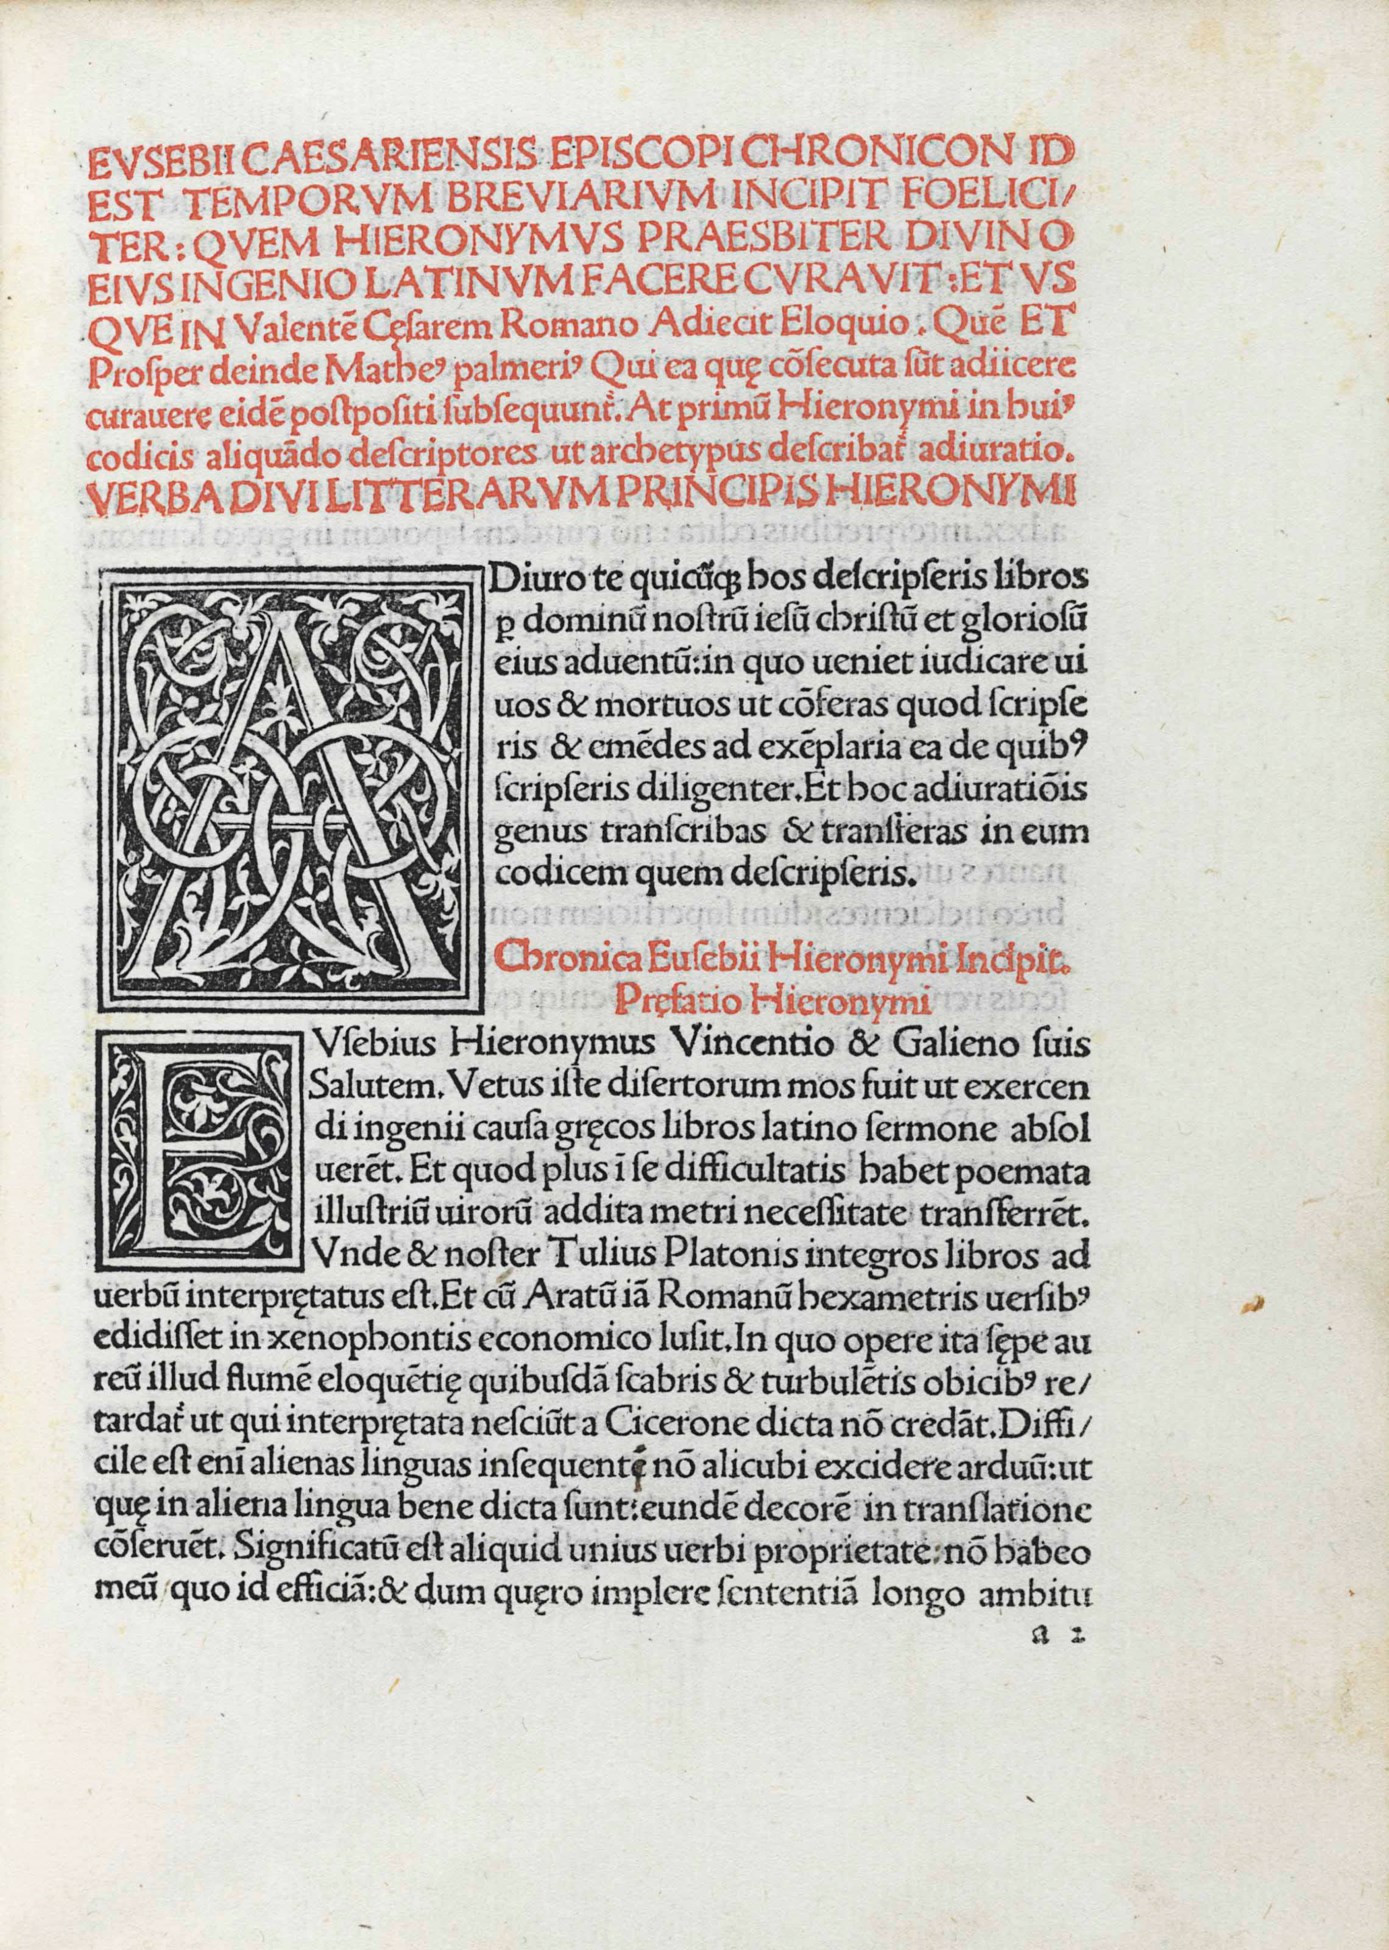 EVSEBII CAESARIENSIS EPISCOPI CHRONICON ID
EST TEMPORVM BREVIARIVM INCIPIT FOELICI/
TER: QVEM HIERONYMVS PRAESBITER DIVINO
EIVS INGENIO LATINVM FACERE CVRAVIT: ET VS
QVE IN Valentē Cęſarem Romano Adiecit Eloquio. Quē ET
Proſper deinde Matheꝰ palmeriꝰ Qui ea quę cōſecuta ſūt adiicere
curauere eidē poſtpoſiti ſubſequunt᷑. At primū Hieronymi in huiꝰ
codicis aliquādo deſcriptores ut archetypus deſcribat᷑ adiuratio.
VERBA DIVI LITTERARVM PRINCIPIS HIERONYMI
ADiuro te quicūqꝫ hos deſcripſeris libros
ꝑ dominū noſtrū ieſū chriſtū et glorioſū
eius aduentū: in quo ueniet iudicare ui
uos & mortuos ut cōferas quod ſcripſe
ris & emēdes ad exēplaria ea de quibꝰ
ſcripſeris diligenter. Et hoc adiuratiōis
genus tranſcribas & tranſferas in eum
codicem quem deſcripſeris.
Chronica Euſebii Hieronymi Incipit.
Pręfatio Hieronymi
EVſebius Hieronymus Vincentio & Galieno ſuis
Salutem. Vetus iſte diſertorum mos fuit ut exercen
di ingenii cauſa gręcos libros latino ſermone abſol
uerēt. Et quod plus ī ſe difficultatis habet poemata
illuſtriū uirorū addita metri neceſſitate tranſferrēt.
Vnde & noſter Tulius Platonis integros libros ad
uerbū interpretatus eſt. Et cū Aratū iā Romanū hexametris uerſibꝰ
edidiſſet in xenophontis economico luſit. In quo opere ita ſępe au
reū illud flumē eloquētię quibuſdā ſcabris & turbulētis obicibꝰ re/
tardat᷑ ut qui interpretata neſciūt a Cicerone dicta nō credāt. Diffi/
cile eſt enī alienas linguas inſequentē nō alicubi excidere arduū: ut
quę in aliena lingua bene dicta ſunt: eundē decorē in tranſlatione
cōſeruēt. Significatū eſt aliquid unius uerbi proprietate: nō habeo
meū quo id efficiā: & dum quęro implere ſententiā longo ambitu
a 2